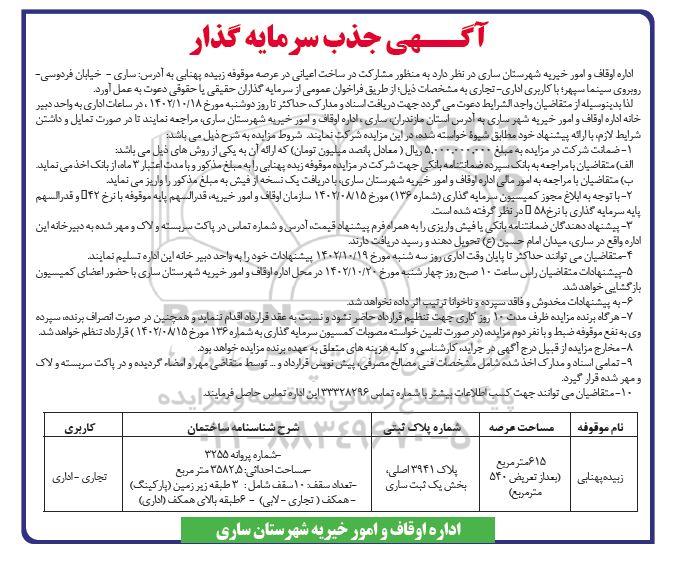 آگـــهی جذب سرمایه گذار
اداره اوقاف و امور خیریه شهرستان ساری در نظر دارد به منظور مشارکت در ساخت اعیانی در عرصه موقوفه زبیده پهنابی به آدرس: ساری - خیابان فردوسی-
روبروی سینما سپهر؛ با کاربری اداری- تجاری به مشخصات ذیل؛ از طریق فراخوان عمومی از سرمایه گذاران حقیقی یا حقوقی دعوت به عمل آورد.
لذا بدینوسیله از متقاضیان واجد الشرایط دعوت می گردد جهت دریافت اسناد و مدارک، حداکثر تا روز دوشنبه مورخ ۱۴۰۲/۱۰/۱۸ ، در ساعات اداری به واحد دبیر
خانه اداره اوقاف و امور خیریه شهر ساری به آدرس استان مازندران، ساری ، اداره اوقاف و امور خیریه شهرستان ساری، مراجعه نمایند تا در صورت تمایل و داشتن
شرایط لازم، با ارائه پیشنهاد خود مطابق شیوهٔ خواسته شده، در این مزایده شرکت نمایند. شروط مزایده به شرح ذیل می باشد:
۱-ضمانت شرکت در مزایده به مبلغ ۵،۰۰۰،۰۰۰،۰۰۰ ریال ( معادل پانصد میلیون تومان) که ارائه آن به یکی از روش های ذیل می باشد:
الف) متقاضیان با مراجعه به بانک سپرده ضمانتنامه بانکی جهت شرکت در مزایده موقوفه زبده پهنابی را به مبلغ مذکور و با مدت اعتبار ۳ ماه، از بانک اخذ می نماید.
ب) متقاضیان با مراجعه به امور مالی اداره اوقاف و امور خیریه شهرستان ساری، با دریافت یک نسخه از فیش به مبلغ مذکور را واریز می نماید.
۲- با توجه به ابلاغ مجوز کمیسیون سرمایه گذاری (شماره ۱۳۶) مورخ ۱۴۰۲/۰۸/۱۵ سازمان اوقاف و امور خیریه، قدرالسهم پایه موقوفه با نرخ ۴۲ و قدرالسهم
پایه سرمایه گذاری با نرخ۵۸ در نظر گرفته شده است.
۳- پیشنهاد دهندگان ضمانتنامه بانکی یا فیش واریزی را به همراه فرم پیشنهاد قیمت، آدرس و شماره تماس در پاکت سربسته و لاک و مهر شده به دبیرخانه این
اداره واقع در ساری، میدان امام حسین (ع) تحویل دهند و رسید دریافت دارند.
۴-متقاضیان می توانند حداکثر تا پایان وقت اداری روز سه شنبه مورخ ۱۴۰۲/۱۰/۱۹ پیشنهادات خود را به واحد دبیر خانه این اداره تسلیم نمایند.
۵-پیشنهادات متقاضیان راس ساعت ۱۰ صبح روز چهار شنبه مورخ ۱۴۰۲/۱۰/۲۰ در محل اداره اوقاف و امور خیریه شهرستان ساری با حضور اعضای کمیسیون
بازگشایی خواهد شد.
۶- به پیشنهادات مخدوش و فاقد سپرده و ناخوانا ترتیب اثر داده نخواهد شد.
۷- هرگاه برنده مزایده ظرف مدت ۱۰ روز کاری جهت تنظیم قرارداد حاضر نشود و نسبت به عقد قرارداد اقدام ننماید و همچنین در صورت انصراف برنده، سپرده
وی به نفع موقوفه ضبط و با نفر دوم مزایده، (در صورت تامین خواسته مصوبات کمسیون سرمایه گذاری به شماره ۱۳۶ مورخ ۱۴۰۲/۰۸/۱۵ ) قرارداد تنظم خواهد شد.
۸-مخارج مزایده از قبیل درج آگهی در جراید، کارشناسی و کلیه هزینه های متعلق به عهده برنده مزایده خواهد بود.
۹- تمامی اسناد و مدارک اخذ شده شامل مشخصات فنی مصالح مصرفی، پیش نویس قرارداد و ... توسط متقاضی مهر و امضاء گردیده و در پاکت سربسته و لاک
و مهر شده قرار گیرد.
۱۰-متقاضیان می توانند جهت کسب اطلاعات بیشتر با شماره تماس ۳۳۳۲۸۲۹۶ این اداره تماس حاصل فرمایند.
نام موقوفه مساحت عرصه شماره پلاک ثبتی شرح شناسنامه ساختمان کاربری
زبیده پهنابی
۶۱۵متر مربع
(بعداز تعریض ۵۴۰
مترمربع)
پلاک ۳۹۴۱ اصلی،
بخش یک ثبت ساری
-شماره پروانه ۳۲۵۵
-مساحت احداثی: ۳۵۸۲،۵ متر مربع
-تعداد سقف: ۱۰ سقف شامل: ۳ طبقه زیر زمین (پارکینگ)
-همکف ( تجاری - لابی) - ۶طبقه بالای همکف (اداری)
تجاری -اداری
اداره اوقاف و امور خیریه شهرستان ساری
پایگاه اطلاع رسانی مناقصه و مزایده
۰۲۱-۸۸۳۴۹۶۷۰-۵